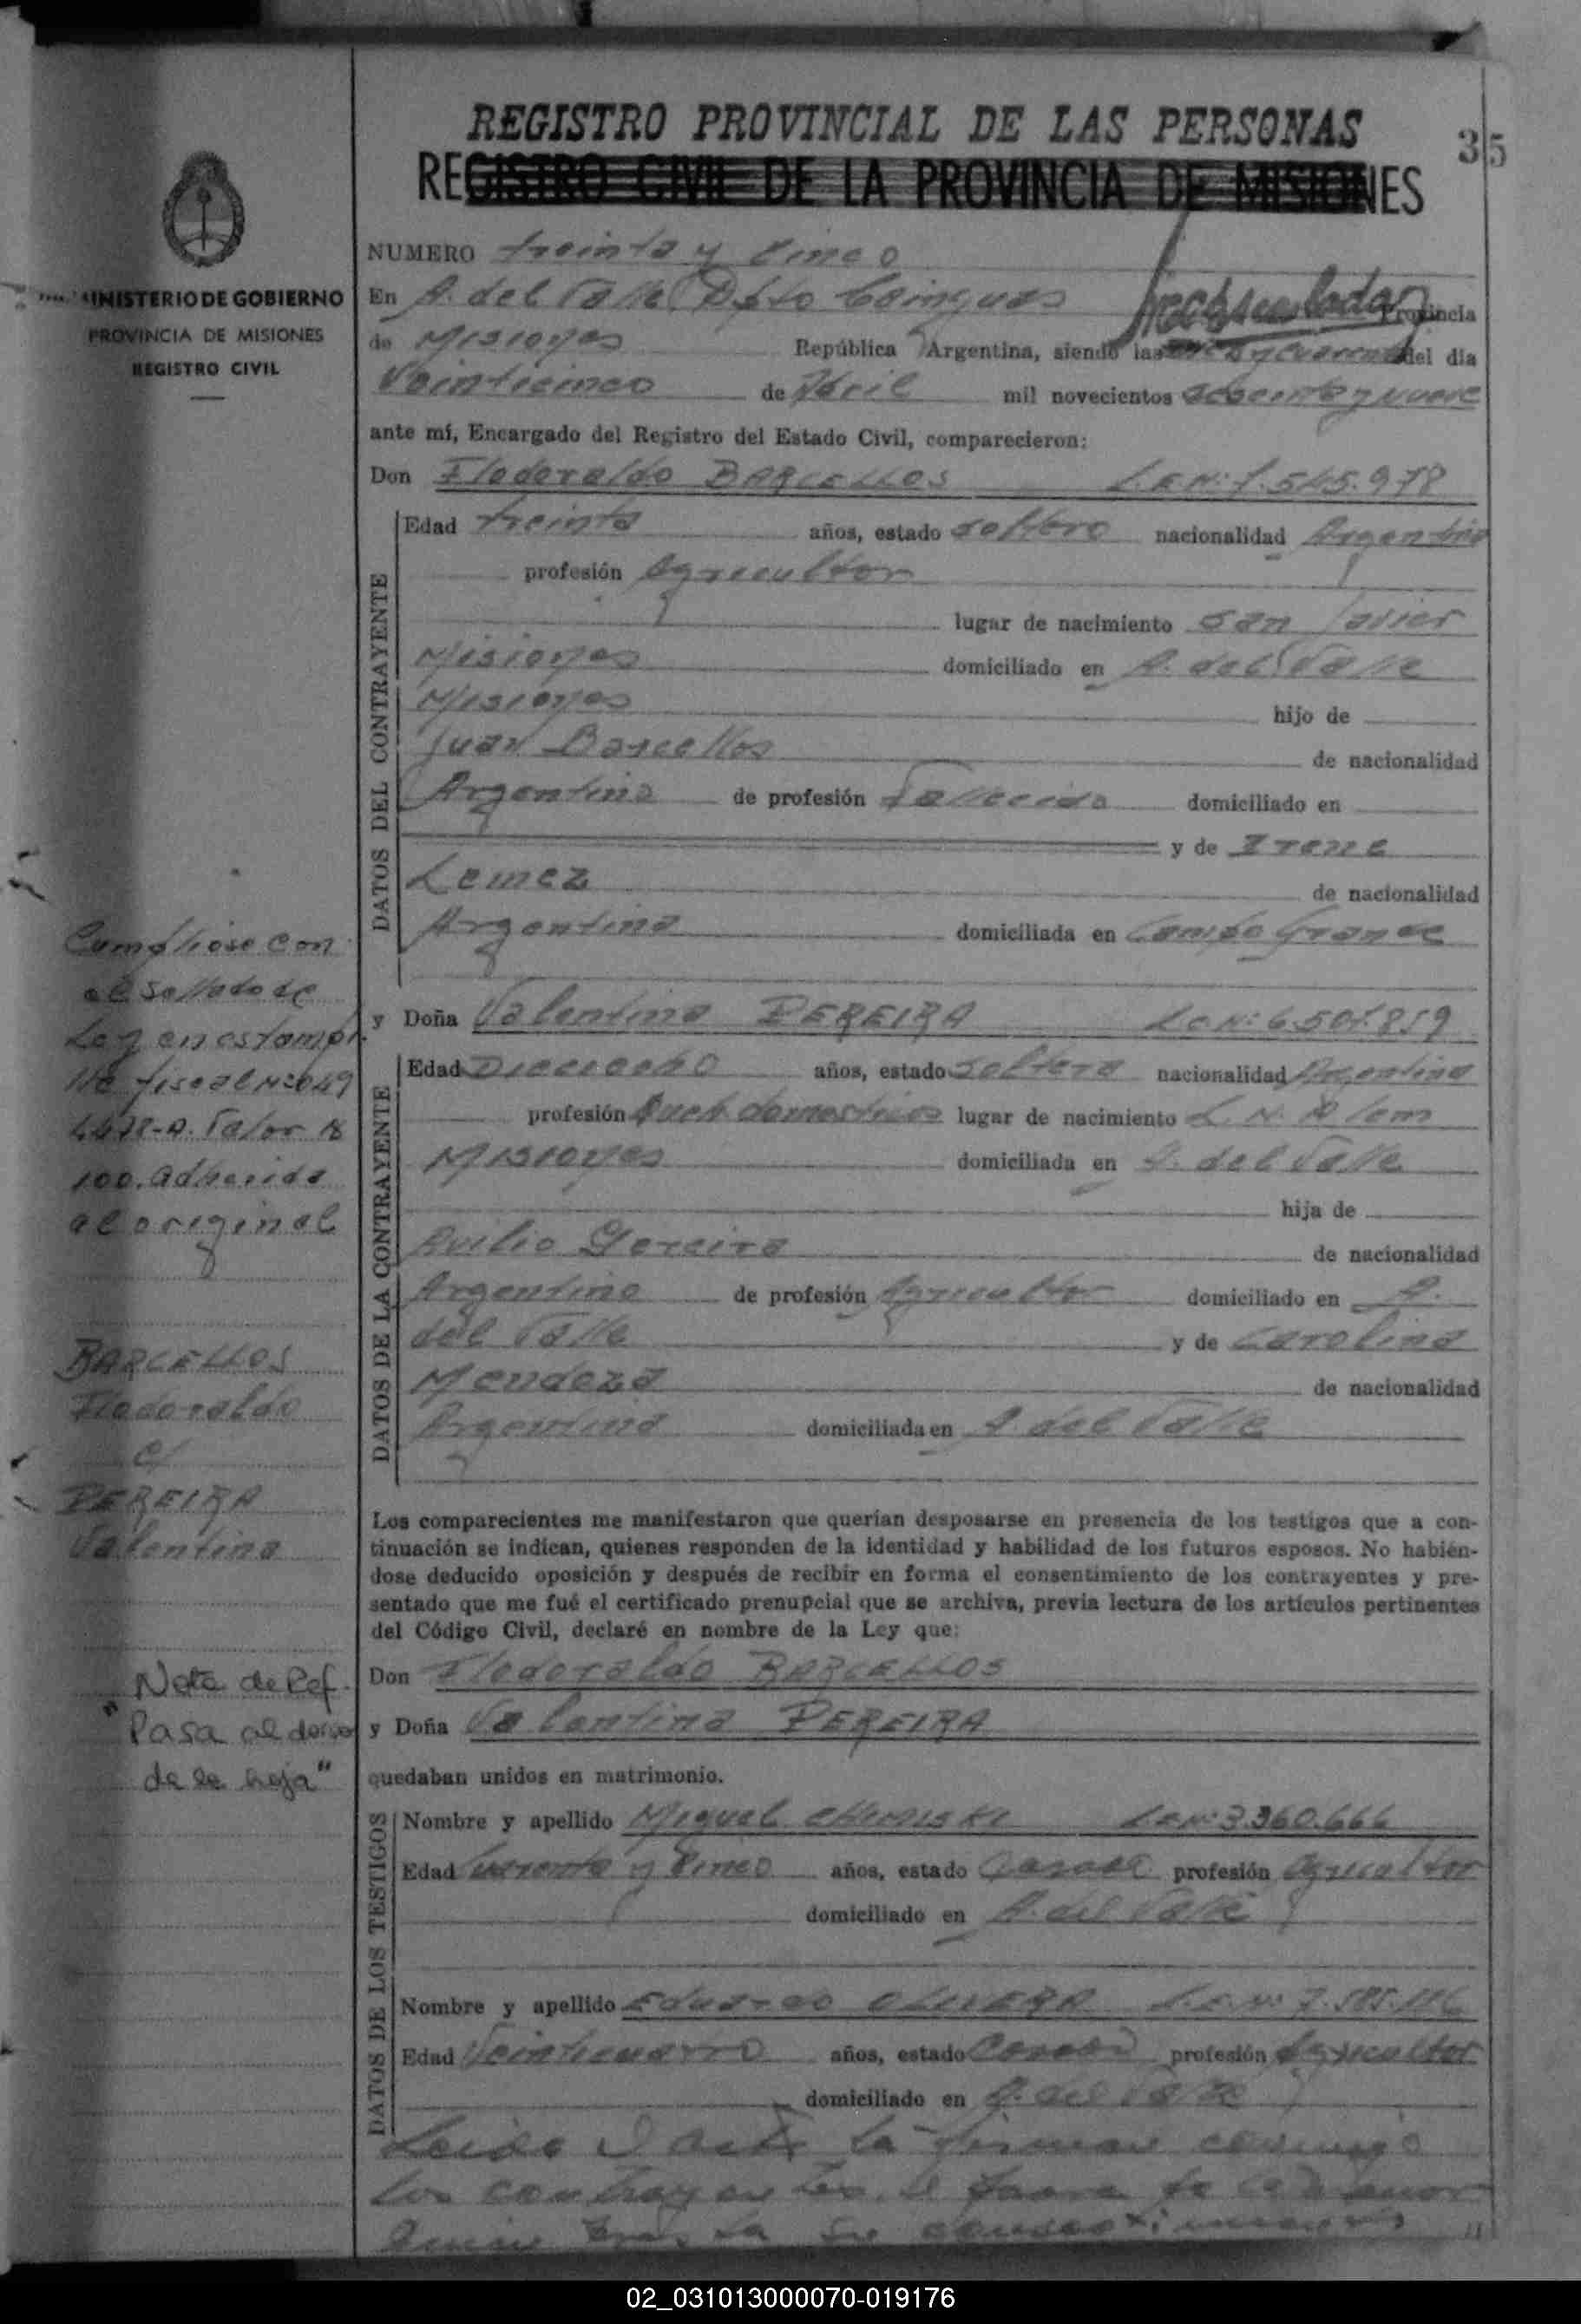 REGISTRO PROVINCIAL DE LAS PERSONAS
35
REGISTRO CIVIL DE LA PROVINCIA DE MISIONES
MINISTERIO DE GOBIERNO
PROVINCIA DE MISIONES
REGISTRO CIVIL
NUMERO treinta y cinco
En A. del Valle Dpto Cainguas Provincia
de Misiones República Argentina, siendo las del día
Veinticinco de Abril mil novecientos sesenta y nueve
ante mí, Encargado del Registro del Estado Civil, comparecieron:
Don Flodoraldo BARCELLOS L.E.Nº: 7.545.978
DATOS DEL CONTRAYENTE
Edad treinta años, estado soltero nacionalidad Argentina
profesión Agricultor
lugar de nacimiento San Javier
Misiones domiciliado en A. del Valle
Misiones hijo de
Juan Barcellos de nacionalidad
Argentina de profesión Fallecido domiciliado en
y de Irene
Lemez de nacionalidad
Argentina domiciliada en Campo Grande
y Doña Valentina PEREIRA L.C.Nº: 6.501.859
DATOS DE LA CONTRAYENTE
Edad Dieciocho años, estado soltera nacionalidad Argentina
profesión Queh. domesticos lugar de nacimiento L. N. Alem
Misiones domiciliada en A. del Valle
hija de
Avilio Pereira de nacionalidad
Argentina de profesión Agricultor domiciliado en A.
del Valle y de Carolina
Mendoza de nacionalidad
Argentina domiciliada en A. del Valle
Los comparecientes me manifestaron que querían desposarse en presencia de los testigos que a con-
tinuación se indican, quienes responden de la identidad y habilidad de los futuros esposos. No habién-
dose deducido oposición y después de recibir en forma el consentimiento de los contrayentes y pre-
sentado que me fué el certificado prenupcial que se archiva, previa lectura de los artículos pertinentes
del Código Civil, declaré en nombre de la Ley que:
Don Flodoraldo BARCELLOS
y Doña Valentina PEREIRA
quedaban unidos en matrimonio.
DATOS DE LOS TESTIGOS
Nombre y apellido Miguel CHIMISKI L.E.Nº: 3.360.666
Edad Cuarenta y Cinco años, estado Casado profesión Agricultor
domiciliado en A. del Valle
Nombre y apellido Eduardo OLIVERA L.E.Nº: 7.585.116
Edad Veinticuatro años, estado Casado profesión Agricultor
domiciliado en A. del Valle
Leida el acta la firman conmigo
los contrayentes, el padre de la menor
quien presta su consentimiento
Cumpliose con
el sellado de
Ley en estampi
lla fiscal Nº 049
4478-A. Valor $
100. adherida
al original
BARCELLOS
Flodoraldo
c/
PEREIRA
Valentina
Nota de Ref.
"Pasa al dorso
de la hoja"
02_031013000070-019176